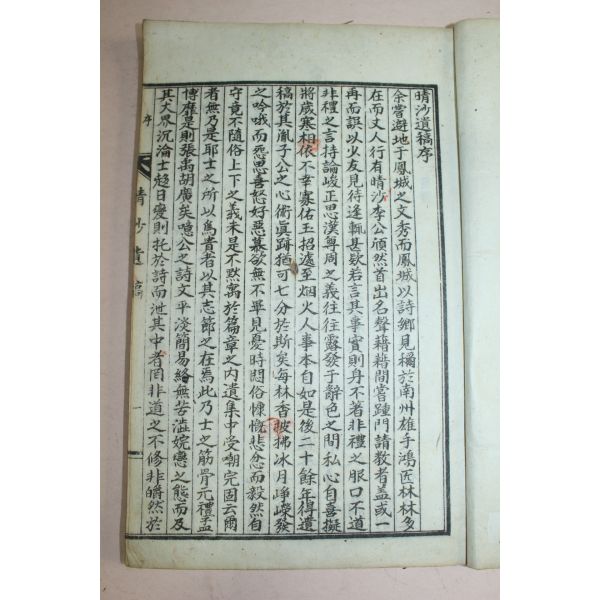 晴沙遺稿序
余嘗避地于鳳城之文秀而鳳城以詩鄉見稱於南州雄手鴻匠林林多
在而丈人行有晴沙李公頎然首出名聲藉藉間嘗踵門請教者盖或一
再而誤以少友見待逢輒甚欵若言其事實則身不著非禮之服口不道
非禮之言持論峻正思漢尊周之義往往露發于辭色之間私心自喜擬
將歲寒相依不幸寡佑玉招遽至烟火人事本自如是後二十餘年得遺
稿於其胤子公之心術眞跡猶可七分於斯矣每林香披拂冰月崢嶸發
之吟哦而悉思喜怒好惡慕欲無不畢見憂時悶俗慷慨悲忿而毅然自
守竟不隨俗上下之義未是不默寓於篇章之內遺集中受嘲完固云爾
者無乃是耶士之所以爲貴者以其志節之在焉此乃士之筋骨元禮孟
博靡是則張禹胡廣矣噫公之詩文平淡簡易絡無苦澁婉戀之態而及
其大界沉淪士趍日變則托於詩而泄其中者罔非道之不修非皭然於
序
晴沙遺稿
一